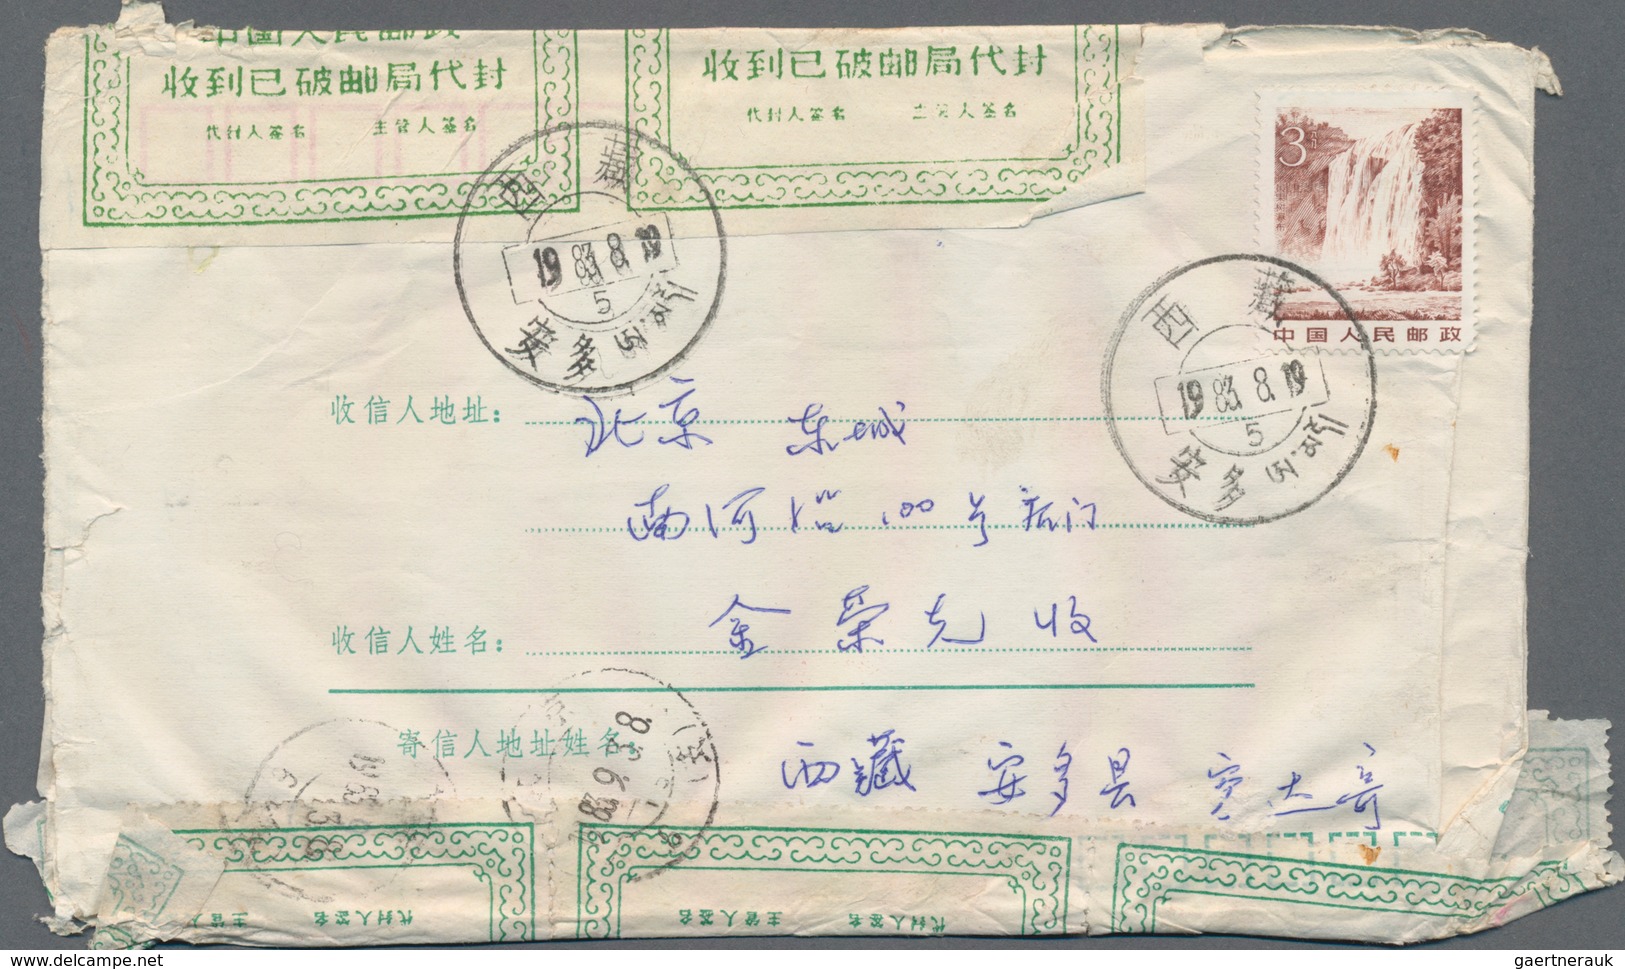 中国人民邮政
收到已破邮局代封
代封人签名 主管人签名
收到已破邮局代封
代封人签名 主管人签名
3
中国人民邮政
西藏
1983.8.19
5
安多
西藏
1983.8.19
5
安多
收信人地址：
北京 东城
南河沿100号后门
收信人姓名：
金荣光 收
寄信人地址姓名：
西藏 安多县
主管人签名
代封人签名
主管人签名
代封人签名
主管人签名
delcampe.net
gaertnerauk